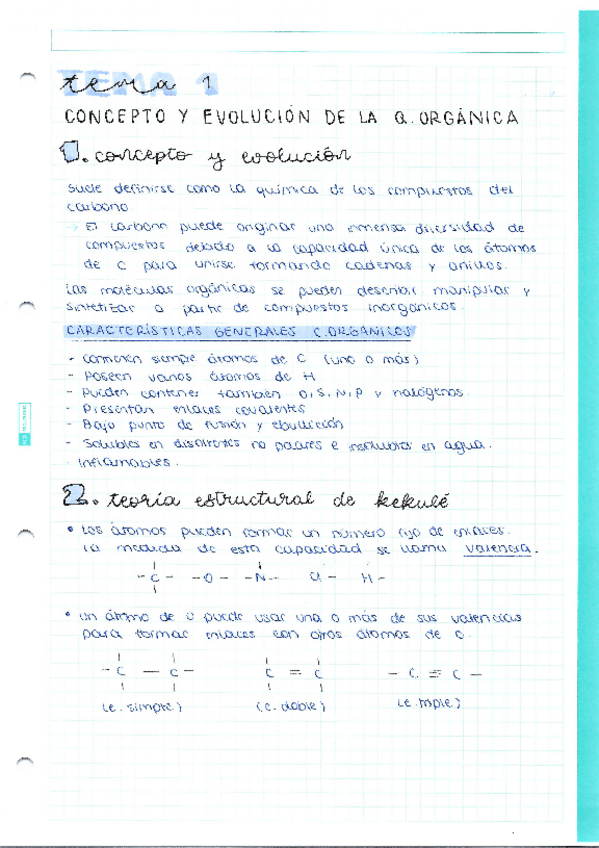 tema 1
CONCEPTO Y EVOLUCIÓN DE LA Q. ORGÁNICA
1. concepto y evolución
suele definirse como la química de los compuestos del
carbono
→ El carbono puede originar una inmensa diversidad de
compuestos debido a la capacidad única de los átomos
de C para unirse formando cadenas y anillos.
Las moléculas orgánicas se pueden describir, manipular y
sintetizar a partir de compuestos inorgánicos.
CARACTERÍSTICAS GENERALES C. ORGÁNICOS
- contienen siempre átomos de C (uno o más)
- Poseen varios átomos de H
- Pueden contener también O, S, N, P y halógenos.
- Presentan enlaces covalentes
- Bajo punto de fusión y ebullición
- Solubles en disolventes no polares e insolubles en agua.
- Inflamables.
2. teoría estructural de kekulé
• Los átomos pueden formar un número fijo de enlaces.
La medida de esta capacidad se llama valencia.
- C - - O - - N - Cl - H -
• un átomo de C puede usar una o más de sus valencias
para formar enlaces con otros átomos de C.
- C — C - C = C - C ≡ C -
(e. simple) (e. doble) (e. triple)